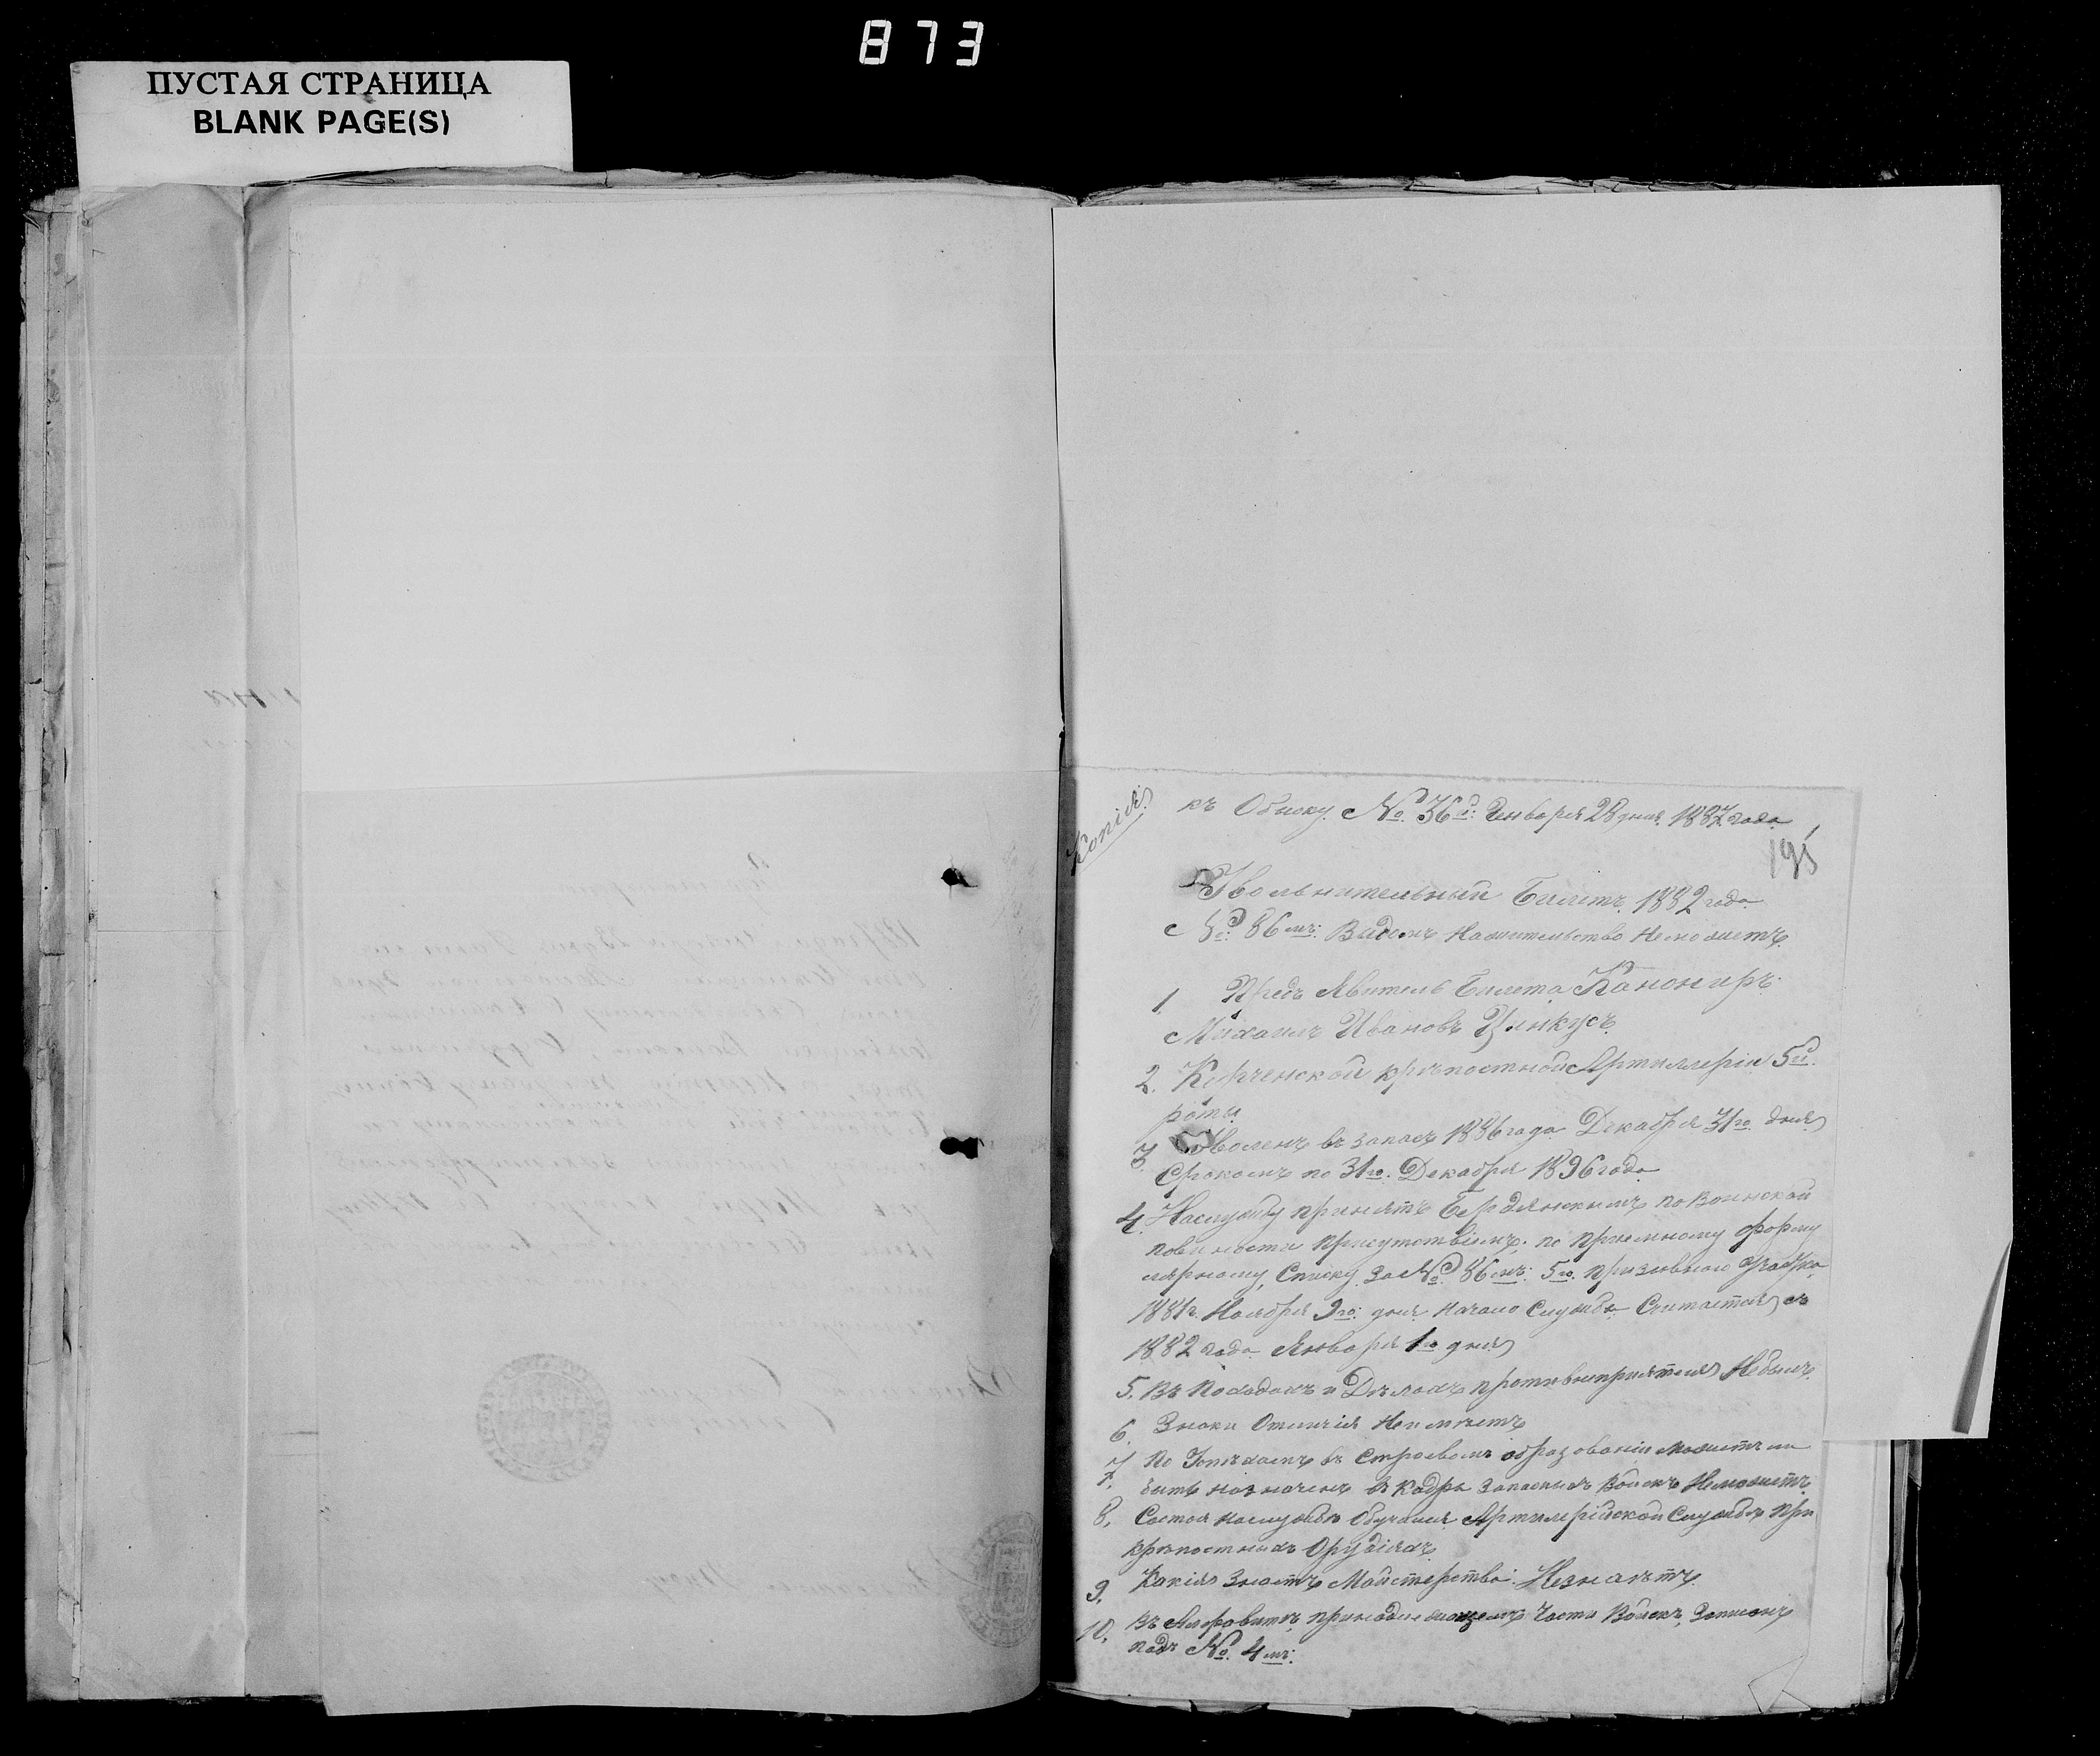 873
ПУСТАЯ СТРАНИЦА
BLANK PAGE(S)
Копія
къ Обыску № 36й: Генваря 28 дня 1887 года
195
Увольнительный Билетъ 1882 года
№: 86мъ: Видомъ Нажительство Неможетъ
1 Предъ Явитель Билета Канониръ
Михаилъ Ивановъ Цинкусъ
2. Керченской крѣпостной Артиллеріи 5й
роты
3. Уволенъ въ запасъ 1886 года Декабря 31го дня
Срокомъ по 31го Декабря 1896 года
4. Наслужбу принятъ Бердянскимъ по Воинской
повиности присутствіемъ по пріемному форму
лярному Списку За № 86мъ: 5го призывного участка
1881г. Ноября 9го: дня Начало Службы Считается съ
1882 года Января 1го дня
5. Въ Походахъ и Дѣлахъ противъ непріятеля Небылъ
6. Знаки Отличія Неимѣетъ
7. По Успѣхамъ въ Строевомъ образованіи можетъ ли
быть назначенъ въ Кадры Запасныхъ Войскъ Неможетъ
8. Состоя Наслужбѣ Обучался Артилерійской Службѣ При
крѣпостныхъ Орудіяхъ
9. Какія Знаетъ Мастерства: Незнаетъ
10. Въ Алфавитѣ принадлежащемъ Части Войскъ, Записанъ
подъ № 4мъ: